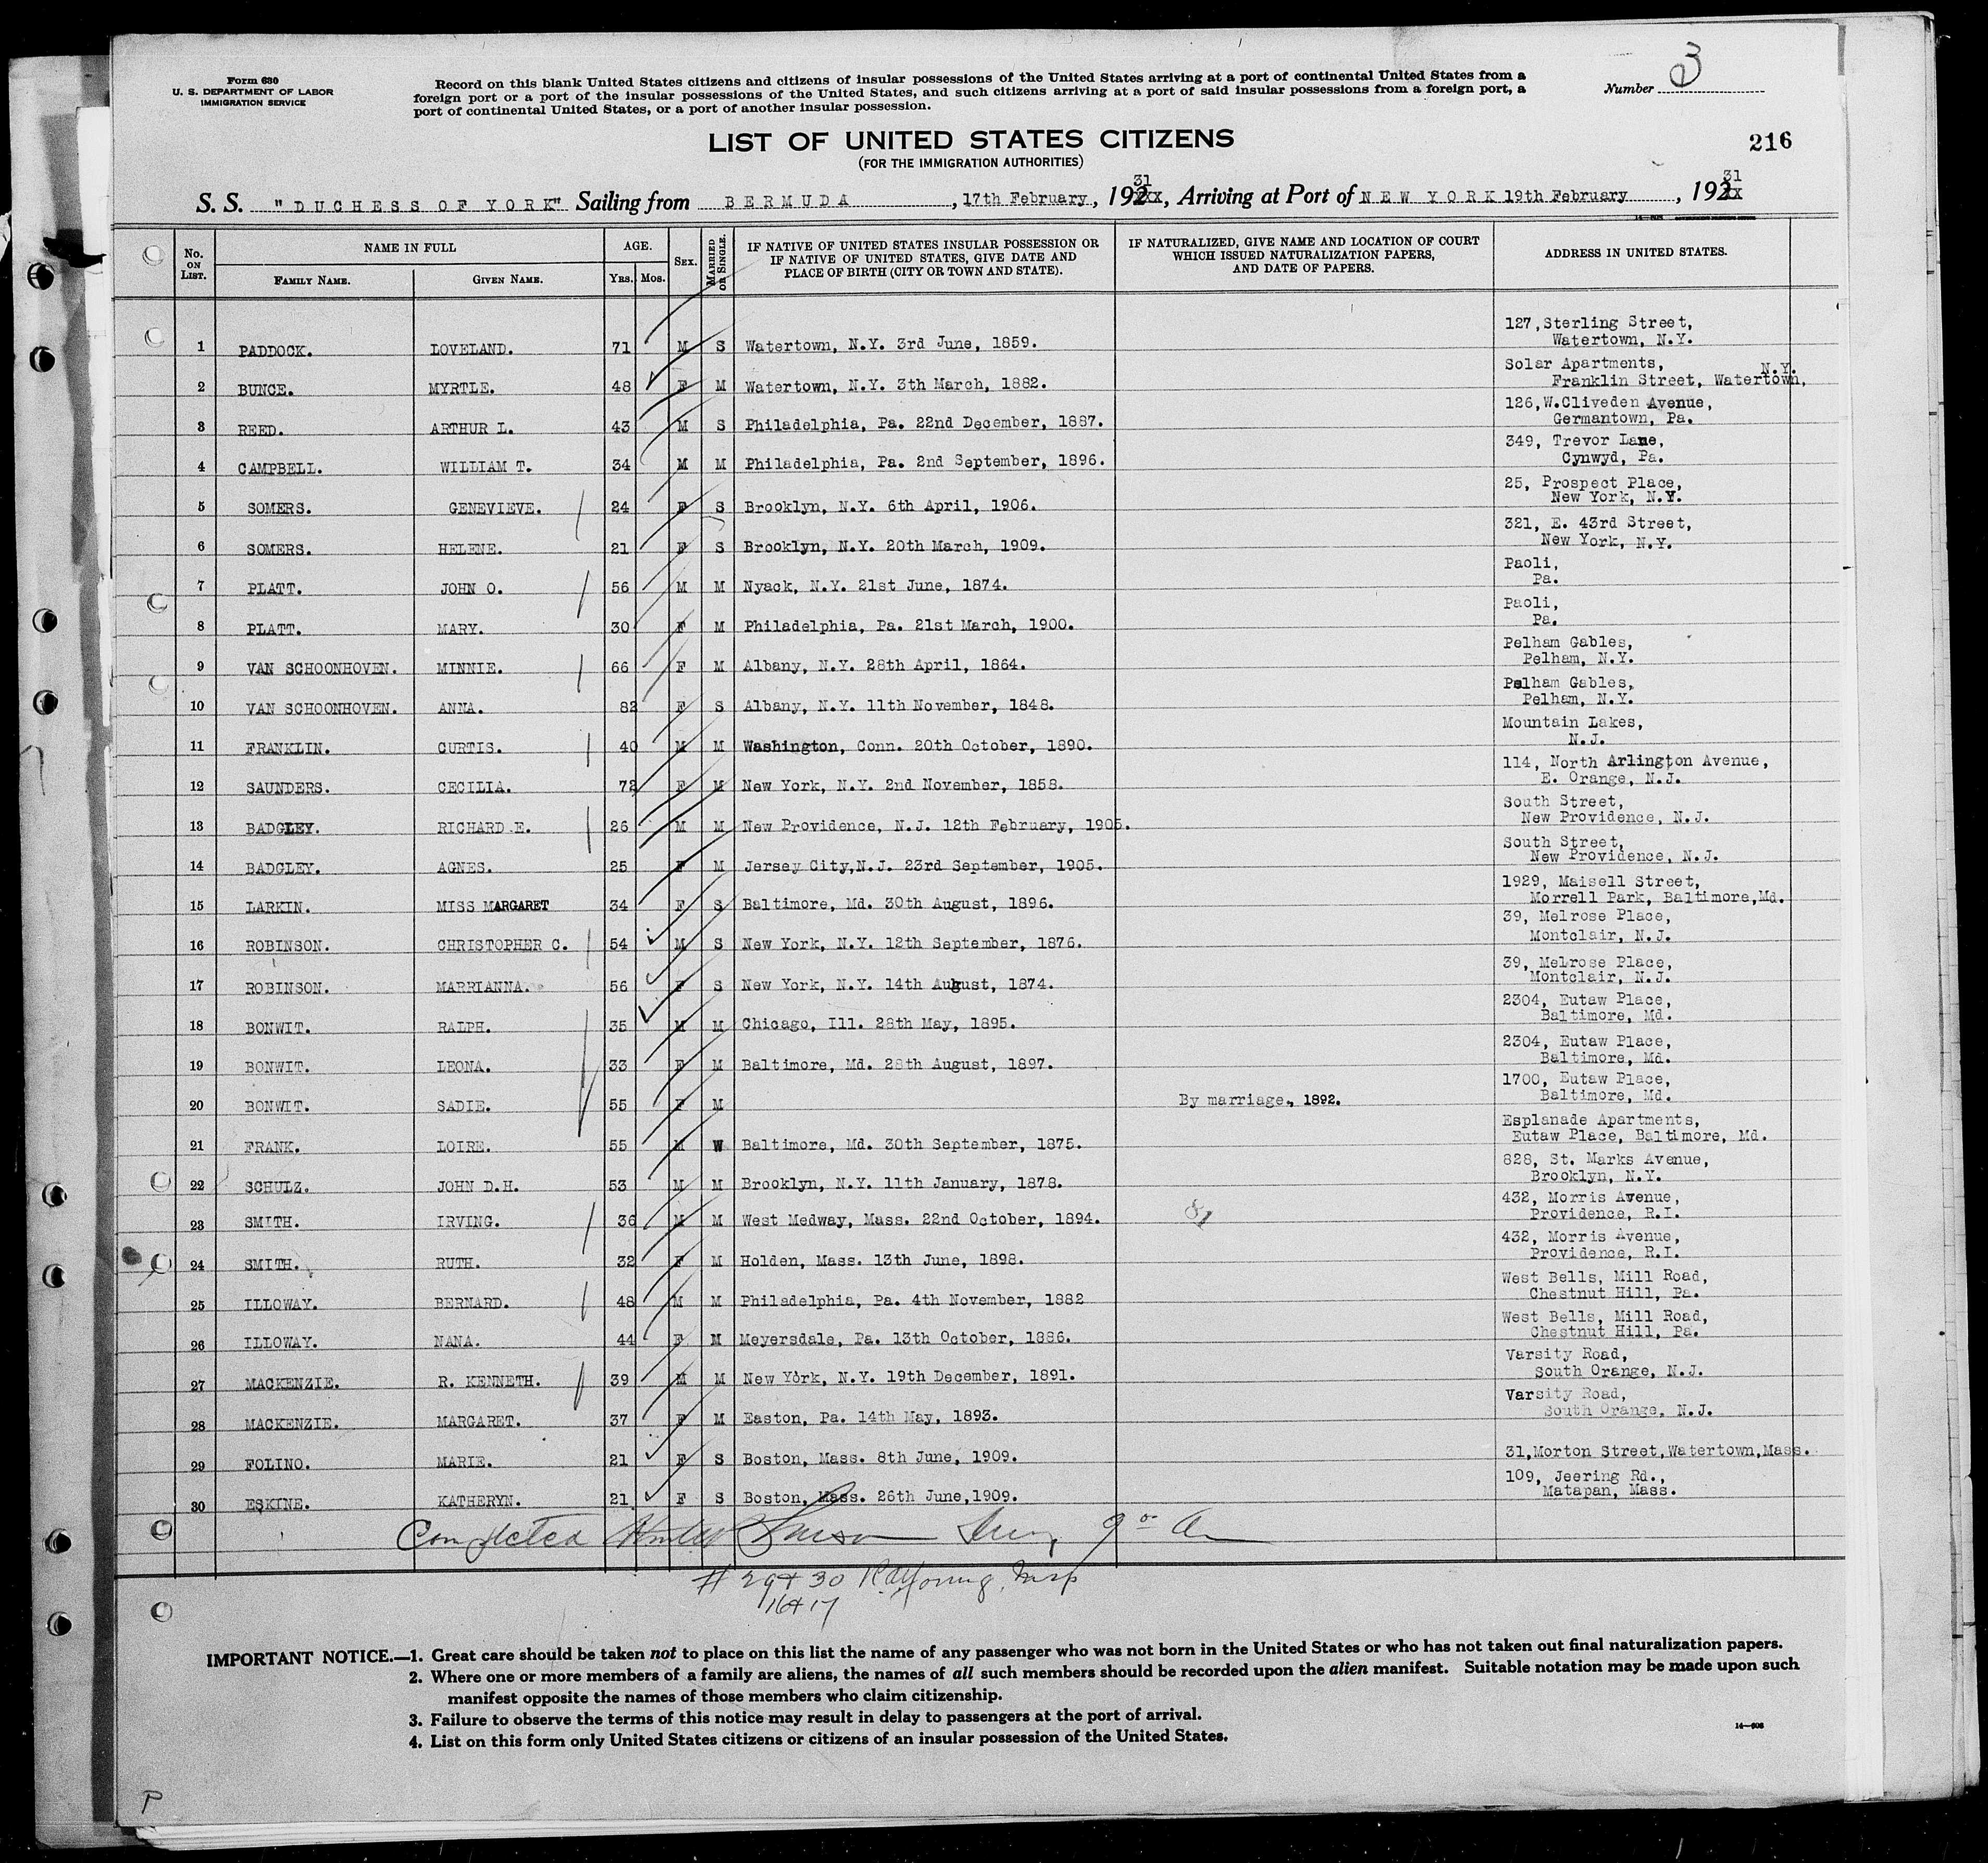 Form 630
U. S. DEPARTMENT OF LABOR
IMMIGRATION SERVICE
Record on this blank United States citizens and citizens of insular possessions of the United States arriving at a port of continental United States from a
foreign port or a port of the insular possessions of the United States, and such citizens arriving at a port of said insular possessions from a foreign port, a
port of continental United States, or a port of another insular possession.
Number 3
LIST OF UNITED STATES CITIZENS
(FOR THE IMMIGRATION AUTHORITIES)
216
S. S. "DUCHESS OF YORK" Sailing from BERMUDA, 17th February, 192XX 31, Arriving at Port of NEW YORK 19th February, 192XX 31
No. ON LIST. NAME IN FULL FAMILY NAME. GIVEN NAME. AGE. YRS. MOS. SEX. MARRIED OR SINGLE. IF NATIVE OF UNITED STATES INSULAR POSSESSION OR IF NATIVE OF UNITED STATES, GIVE DATE AND PLACE OF BIRTH (CITY OR TOWN AND STATE). IF NATURALIZED, GIVE NAME AND LOCATION OF COURT WHICH ISSUED NATURALIZATION PAPERS, AND DATE OF PAPERS. ADDRESS IN UNITED STATES.
1 PADDOCK. LOVELAND. 71 M S Watertown, N.Y. 3rd June, 1859. 127, Sterling Street, Watertown, N.Y.
2 BUNCE. MYRTLE. 48 F M Watertown, N.Y. 3th March, 1882. Solar Apartments, Franklin Street, Watertown, N.Y.
3 REED. ARTHUR L. 43 M S Philadelphia, Pa. 22nd December, 1887. 126, W.Cliveden Avenue, Germantown, Pa.
4 CAMPBELL. WILLIAM T. 34 M M Philadelphia, Pa. 2nd September, 1896. 349, Trevor Lane, Cynwyd, Pa.
5 SOMERS. GENEVIEVE. 24 F S Brooklyn, N.Y. 6th April, 1906. 25, Prospect Place, New York, N.Y.
6 SOMERS. HELENE. 21 F S Brooklyn, N.Y. 20th March, 1909. 321, E. 43rd Street, New York, N.Y.
7 PLATT. JOHN O. 56 M M Nyack, N.Y. 21st June, 1874. Paoli, Pa.
8 PLATT. MARY. 30 F M Philadelphia, Pa. 21st March, 1900. Paoli, Pa.
9 VAN SCHOONHOVEN. MINNIE. 66 F M Albany, N.Y. 28th April, 1864. Pelham Gables, Pelham, N.Y.
10 VAN SCHOONHOVEN. ANNA. 82 F S Albany, N.Y. 11th November, 1848. Pelham Gables, Pelham, N.Y.
11 FRANKLIN. CURTIS. 40 M M Washington, Conn. 20th October, 1890. Mountain Lakes, N.J.
12 SAUNDERS. CECILIA. 72 F M New York, N.Y. 2nd November, 1858. 114, North Arlington Avenue, E. Orange, N.J.
13 BADGLEY. RICHARD E. 26 M M New Providence, N.J. 12th February, 1905. South Street, New Providence, N.J.
14 BADGLEY. AGNES. 25 F M Jersey City, N.J. 23rd September, 1905. South Street, New Providence, N.J.
15 LARKIN. MISS MARGARET 34 F S Baltimore, Md. 30th August, 1896. 1929, Maisell Street, Morrell Park, Baltimore, Md.
16 ROBINSON. CHRISTOPHER C. 54 M S New York, N.Y. 12th September, 1876. 39, Melrose Place, Montclair, N.J.
17 ROBINSON. MARRIANNA. 56 F S New York, N.Y. 14th August, 1874. 39, Melrose Place, Montclair, N.J.
18 BONWIT. RALPH. 35 M M Chicago, Ill. 28th May, 1895. 2304, Eutaw Place, Baltimore, Md.
19 BONWIT. LEONA. 33 F M Baltimore, Md. 28th August, 1897. 2304, Eutaw Place, Baltimore, Md.
20 BONWIT. SADIE. 55 F M By marriage, 1892. 1700, Eutaw Place, Baltimore, Md.
21 FRANK. LOIRE. 55 M W Baltimore, Md. 30th September, 1875. Esplanade Apartments, Eutaw Place, Baltimore, Md.
22 SCHULZ. JOHN D.H. 53 M M Brooklyn, N.Y. 11th January, 1878. 828, St. Marks Avenue, Brooklyn, N.Y.
23 SMITH. IRVING. 36 M M West Medway, Mass. 22nd October, 1894. 432, Morris Avenue, Providence, R.I.
24 SMITH. RUTH. 32 F M Holden, Mass. 13th June, 1898. 432, Morris Avenue, Providence, R.I.
25 ILLOWAY. BERNARD. 48 M M Philadelphia, Pa. 4th November, 1882 West Bells, Mill Road, Chestnut Hill, Pa.
26 ILLOWAY. NANA. 44 F M Meyersdale, Pa. 13th October, 1886. West Bells, Mill Road, Chestnut Hill, Pa.
27 MACKENZIE. R. KENNETH. 39 M M New York, N.Y. 19th December, 1891. Varsity Road, South Orange, N.J.
28 MACKENZIE. MARGARET. 37 F M Easton, Pa. 14th May, 1893. Varsity Road, South Orange, N.J.
29 FOLINO. MARIE. 21 F S Boston, Mass. 8th June, 1909. 31, Morton Street, Watertown, Mass.
30 ESKINE. KATHERYN. 21 F S Boston, Mass. 26th June, 1909. 109, Jeering Rd., Matapan, Mass.
Completed
# 29 + 30 Insp
16 + 17
IMPORTANT NOTICE.—1. Great care should be taken not to place on this list the name of any passenger who was not born in the United States or who has not taken out final naturalization papers.
2. Where one or more members of a family are aliens, the names of all such members should be recorded upon the alien manifest. Suitable notation may be made upon such
manifest opposite the names of those members who claim citizenship.
3. Failure to observe the terms of this notice may result in delay to passengers at the port of arrival.
4. List on this form only United States citizens or citizens of an insular possession of the United States.
P